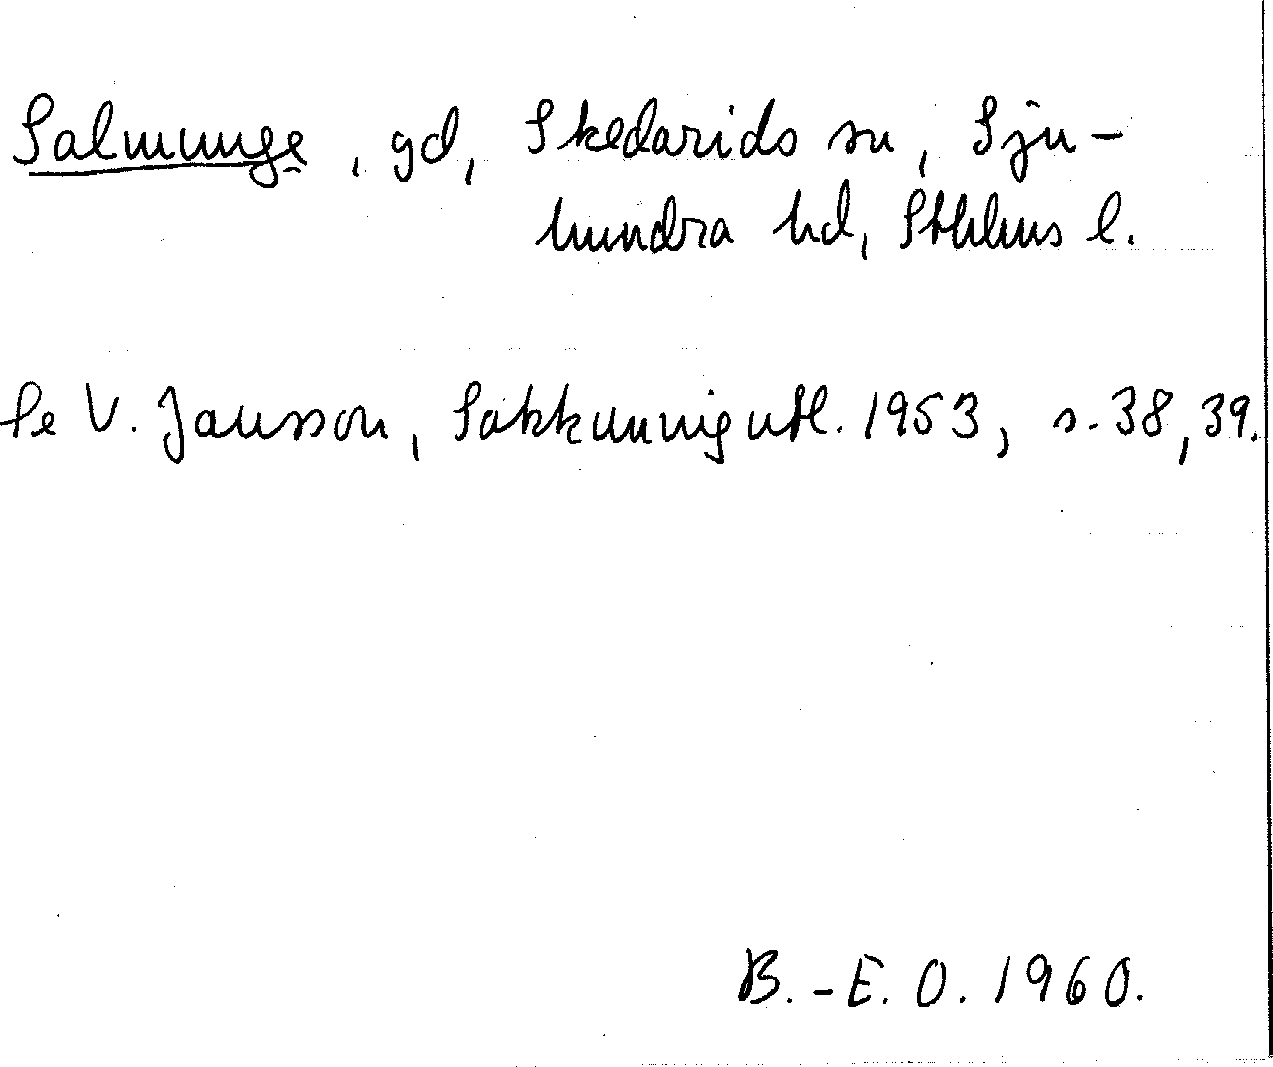 Salmunge, gd, Skedarids sn, Sju-
hundra hd, Sthlms l.
Se V. Jansson, Sakkunnigutl. 1953, s. 38, 39.
B.-E. O. 1960.